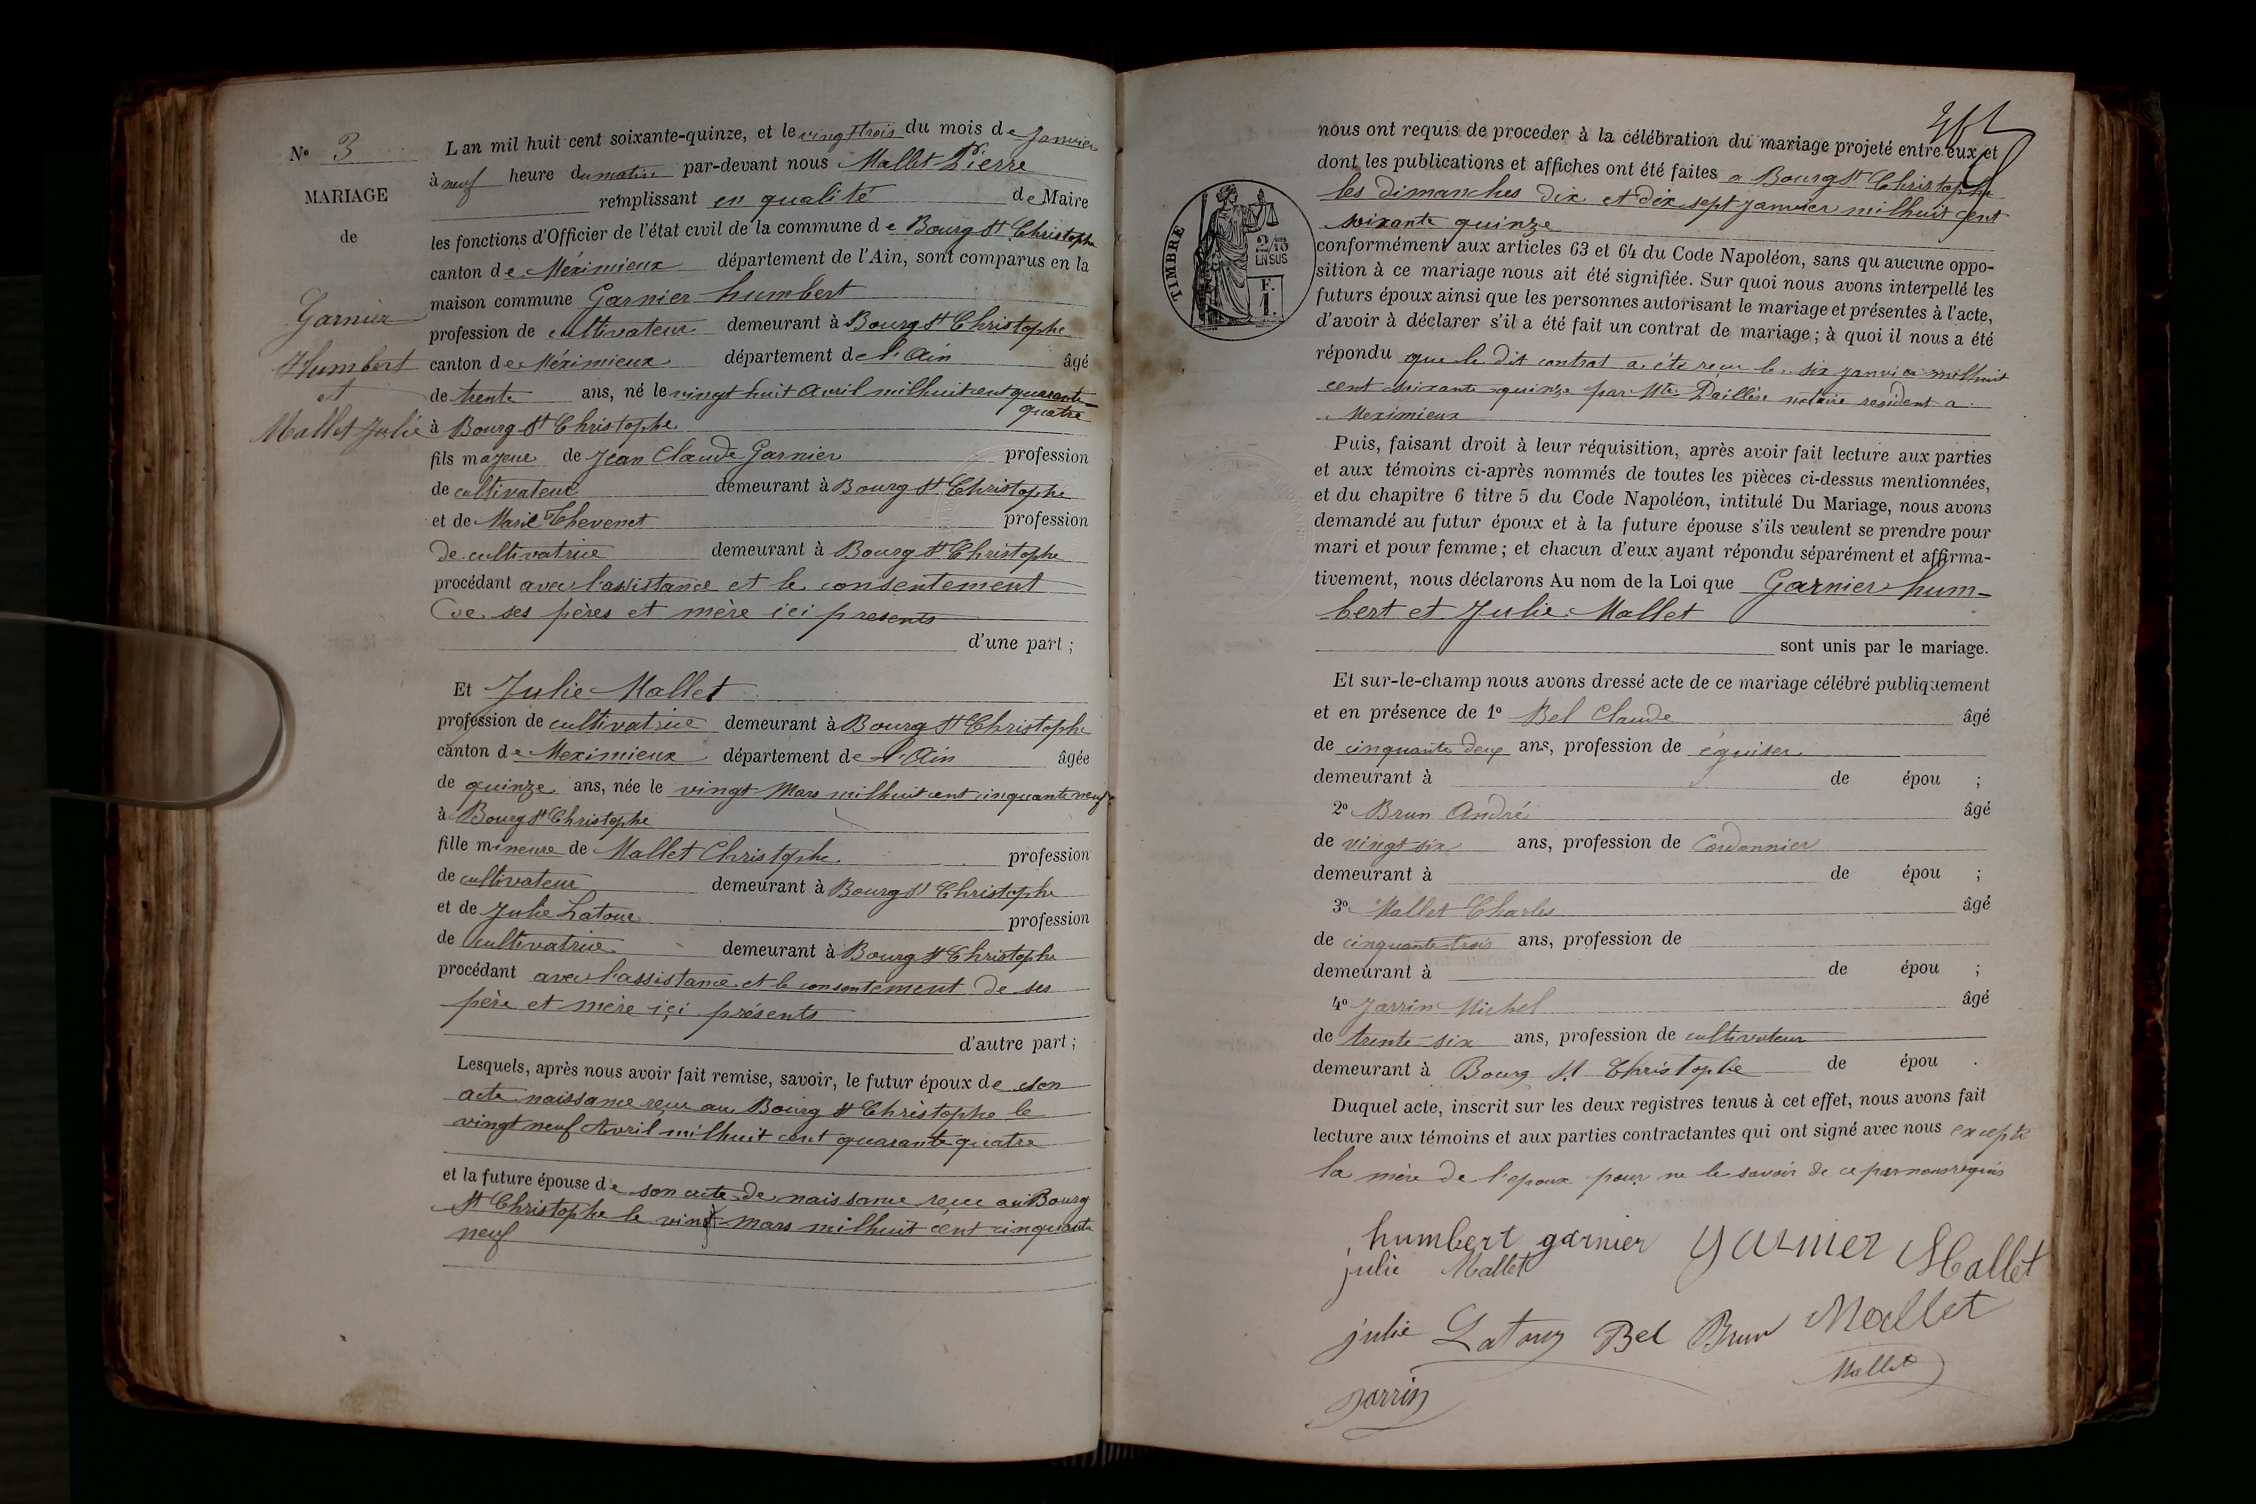 N° 3
MARIAGE
de
Garnier
Humbert
et
Mallet Julie
L an mil huit cent soixante-quinze, et le vingt trois du mois de janvier
à neuf heure du matin par-devant nous Mallet Pierre
remplissant en qualité de Maire
les fonctions d'Officier de l'état civil de la commune de Bourg St Christophe
canton de Méximieux département de l'Ain, sont comparus en la
maison commune Garnier humbert
profession de cultivateur demeurant à Bourg St Christophe
canton de Méximieux département de l'Ain âgé
de trente ans, né le vingt huit Avril milhuit cent quarante
quatre
à Bourg St Christophe
fils majeur de Jean Claude Garnier profession
de cultivateur demeurant à Bourg St Christophe
et de Marie Thevenet profession
De cultivatrice demeurant à Bourg St Christophe
procédant avec l'assistance et le consentement
de ses pères et mère ici presents
d'une part ;
Et Julie Mallet
profession de cultivatrice demeurant à Bourg St Christophe
canton de Meximieux département de l'Ain âgée
de quinze ans, née le vingt Mars milhuit cent cinquante neuf
à Bourg St Christophe
fille mineure de Mallet Christophe profession
de cultivateur demeurant à Bourg St Christophe
et de Julie Latour profession
de cultivatrice demeurant à Bourg St Christophe
procédant avec l'assistance et le consentement de ses
père et mère içi présents
d'autre part ;
Lesquels, après nous avoir fait remise, savoir, le futur époux de son
acte naissance reçu au Bourg St Christophe le
vingt neuf Avril milhuit cent quarante quatre
et la future épouse de son acte de naissance reçu au Bourg
St Christophe le vingt mars milhuit cent cinquante
neuf
nous ont requis de procéder à la célébration du mariage projeté entre eux et
dont les publications et affiches ont été faites a Bourg St Christophe
les dimanches dix et dix sept janvier milhuit cent
soixante quinze
TIMBRE
2/10
EN SUS
F.
1.
conformément aux articles 63 et 64 du Code Napoléon, sans qu aucune oppo-
sition à ce mariage nous ait été signifiée. Sur quoi nous avons interpellé les
futurs époux ainsi que les personnes autorisant le mariage et présentes à l'acte,
d'avoir à déclarer s'il a été fait un contrat de mariage ; à quoi il nous a été
répondu que le dit contrat a été reçu le six janvier milhuit
cent soixante quinze par Mte Daillère notaire resident a
Meximieux
Puis, faisant droit à leur réquisition, après avoir fait lecture aux parties
et aux témoins ci-après nommés de toutes les pièces ci-dessus mentionnées,
et du chapitre 6 titre 5 du Code Napoléon, intitulé Du Mariage, nous avons
demandé au futur époux et à la future épouse s'ils veulent se prendre pour
mari et pour femme ; et chacun d'eux ayant répondu séparément et affirma-
tivement, nous déclarons Au nom de la Loi que Garnier hum-
bert et Julie Mallet
sont unis par le mariage.
Et sur-le-champ nous avons dressé acte de ce mariage célébré publiquement
et en présence de 1° Bel Claude âgé
de cinquante deux ans, profession de
demeurant à de épou ;
2° Brun André âgé
de vingt six ans, profession de Cordonnier
demeurant à de épou ;
3° Mallet Charles âgé
de cinquante-trois ans, profession de
demeurant à de épou ;
4° Jarrin Michel âgé
de trente-six ans, profession de cultivateur
demeurant à Bourg St Christophe de épou .
Duquel acte, inscrit sur les deux registres tenus à cet effet, nous avons fait
lecture aux témoins et aux parties contractantes qui ont signé avec nous excepté
la mère de l'epoux pour ne le savoir de ce par nous requis
humbert garnier garnier Mallet
julie Mallet
julie Latour Bel Brun Mallet
Mallet
Jarrin